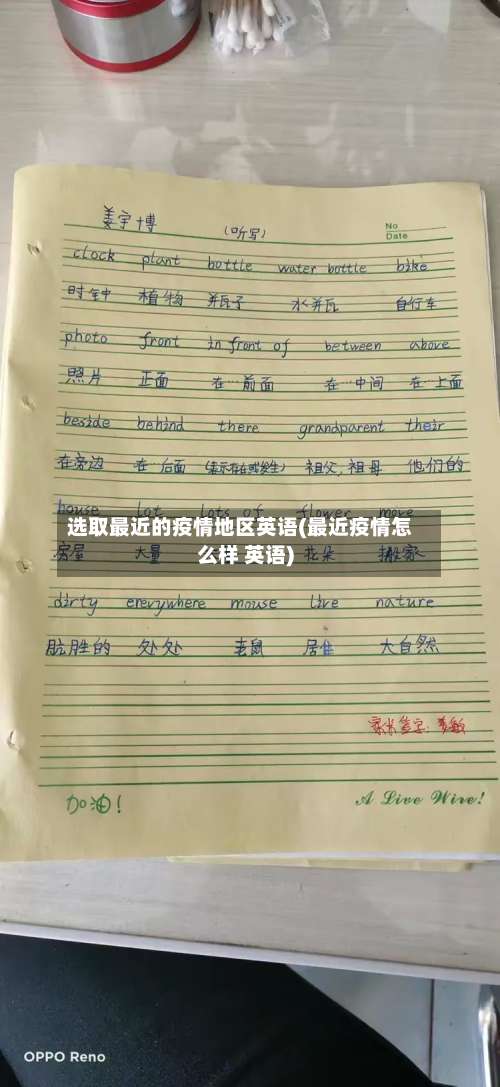 姜宇博 (听写) No
Date
clock plant bottle water bottle bike
时钟 植物 并瓦子 水并瓦 自行车
photo front in front of between above
照片 正面 在…前面 在…中间 在…上面
beside behind there grandparent their
在旁边 在后面 (表示存在或发生) 祖父,祖母 他们的
house lot lots of flower move
选取最近的疫情地区英语(最近疫情怎
么样 英语)
房屋 大量 花朵 搬家
dirty erevywhere mouse live nature
肮脏的 处处 老鼠 居住 大自然
家长签字:
加油! A Live Wire!
OPPO Reno